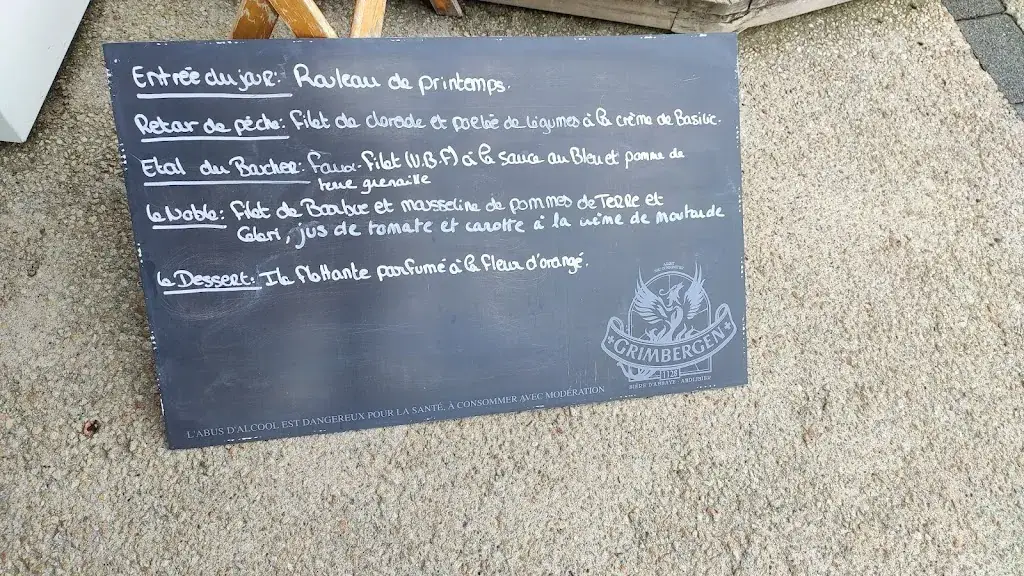 Entrée du jour: Rouleau de printemps.
Retour de pêche: Filet de dorade et poelée de légumes à la crème de Basilic.
Etal du Boucher: Faux-Filet (V.B.F) à la sauce au Bleu et pomme de
terre grenaille
Le Noble: Filet de Barbue et mousseline de pommes de Terre et
Céleri, jus de tomate et carotte à la crème de Moutarde
Le Dessert: Ile flottante parfumé à la fleur d'orangé.
GRIMBERGEN
1128
BIÈRE D'ABBAYE ABDIJBIER
L'ABUS D'ALCOOL EST DANGEREUX POUR LA SANTÉ, À CONSOMMER AVEC MODÉRATION